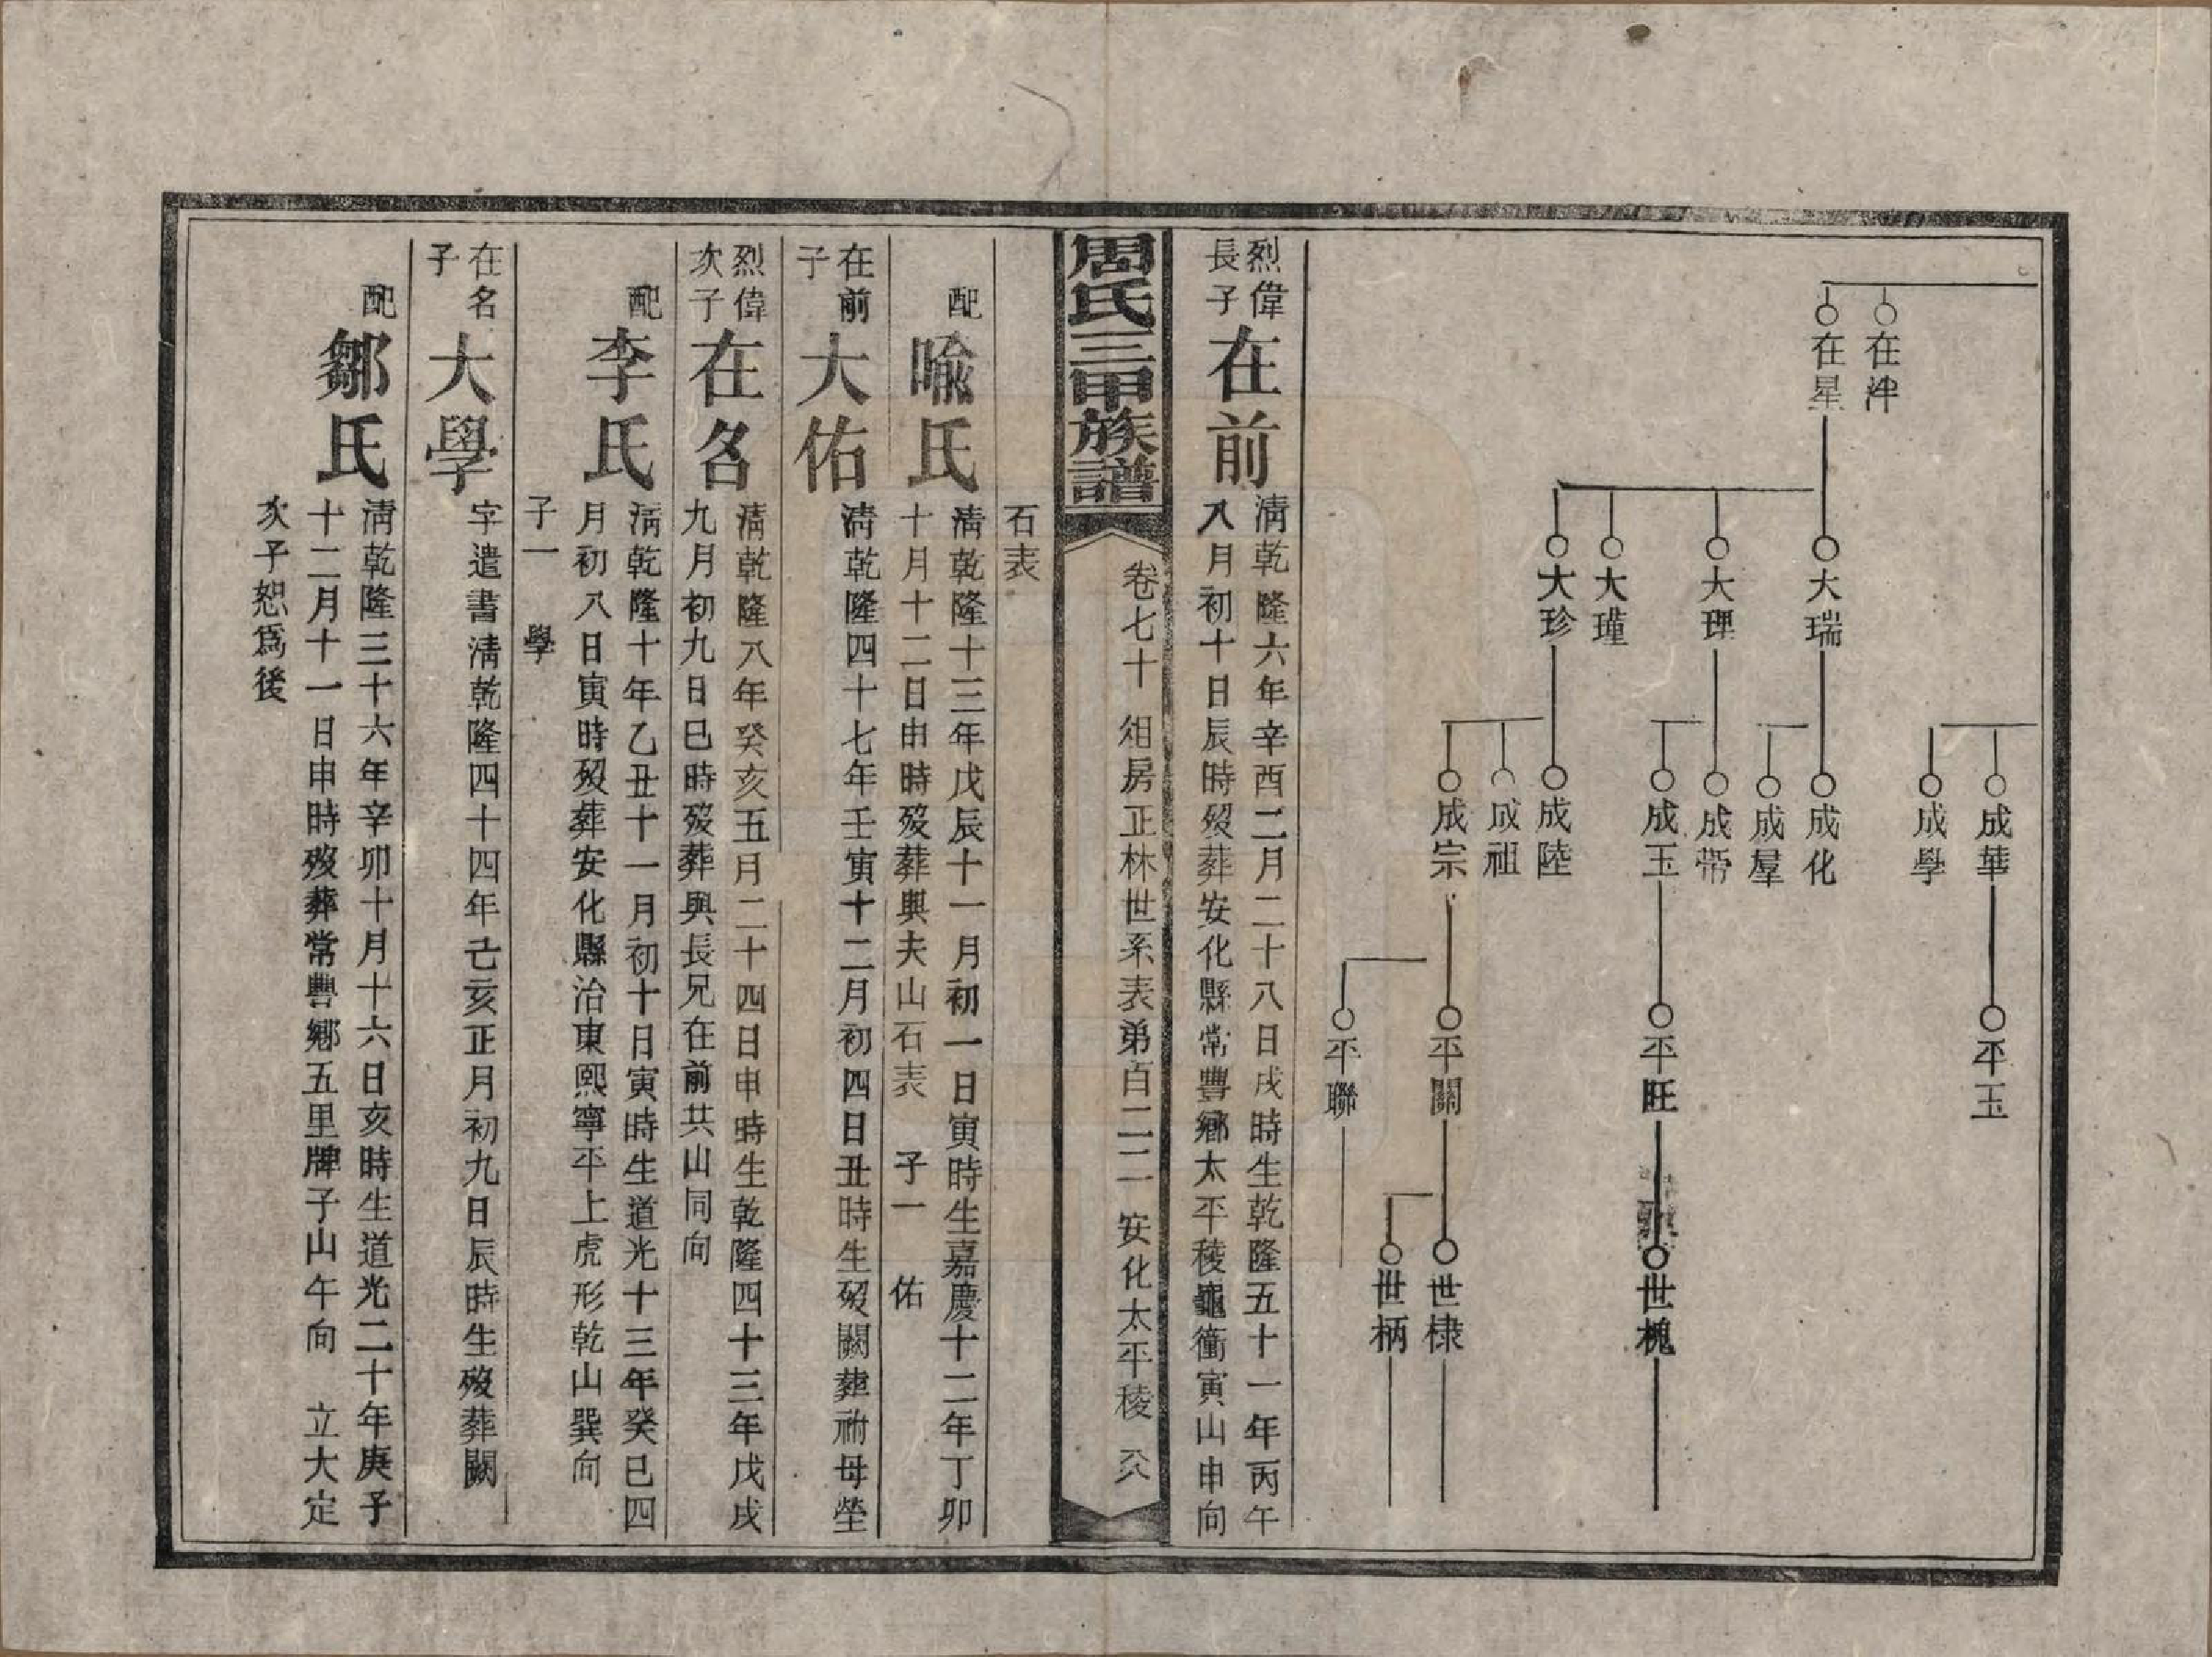 在泮
在星
大瑞
大理
大瑾
大珍
成華
成學
成化
成羣
成帶
成玉
成陸
成祖
成宗
平玉
平旺
平關
平聯
世槐
世棣
世柄
烈偉
長子
在前
清乾隆六年辛酉二月二十八日戌時生乾隆五十一年丙午
八月初十日辰時歿葬安化縣常豐鄉太平稜龜衝寅山申向
周氏三甲族譜
卷七十 俎房正林世系表弟百二二 安化太平稜
石表
配
喻氏
清乾隆十三年戊辰十一月初一日寅時生嘉慶十二年丁卯
十月十二日申時歿葬與夫山石表 子一 佑
在前
子
大佑
清乾隆四十七年壬寅十二月初四日丑時生歿闕葬祔母塋
烈偉
次子
在名
清乾隆八年癸亥五月二十四日申時生乾隆四十三年戊戌
九月初九日巳時歿葬與長兄在前共山同向
配
李氏
清乾隆十年乙丑十一月初十日寅時生道光十三年癸巳四
月初八日寅時歿葬安化縣治東熙寧平上虎形乾山巽向
子一 學
在名
子
大學
字遣書清乾隆四十四年己亥正月初九日辰時生歿葬闕
配
鄒氏
清乾隆三十六年辛卯十月十六日亥時生道光二十年庚子
十二月十一日申時歿葬常豐鄉五里牌子山午向 立大定
次子恕為後